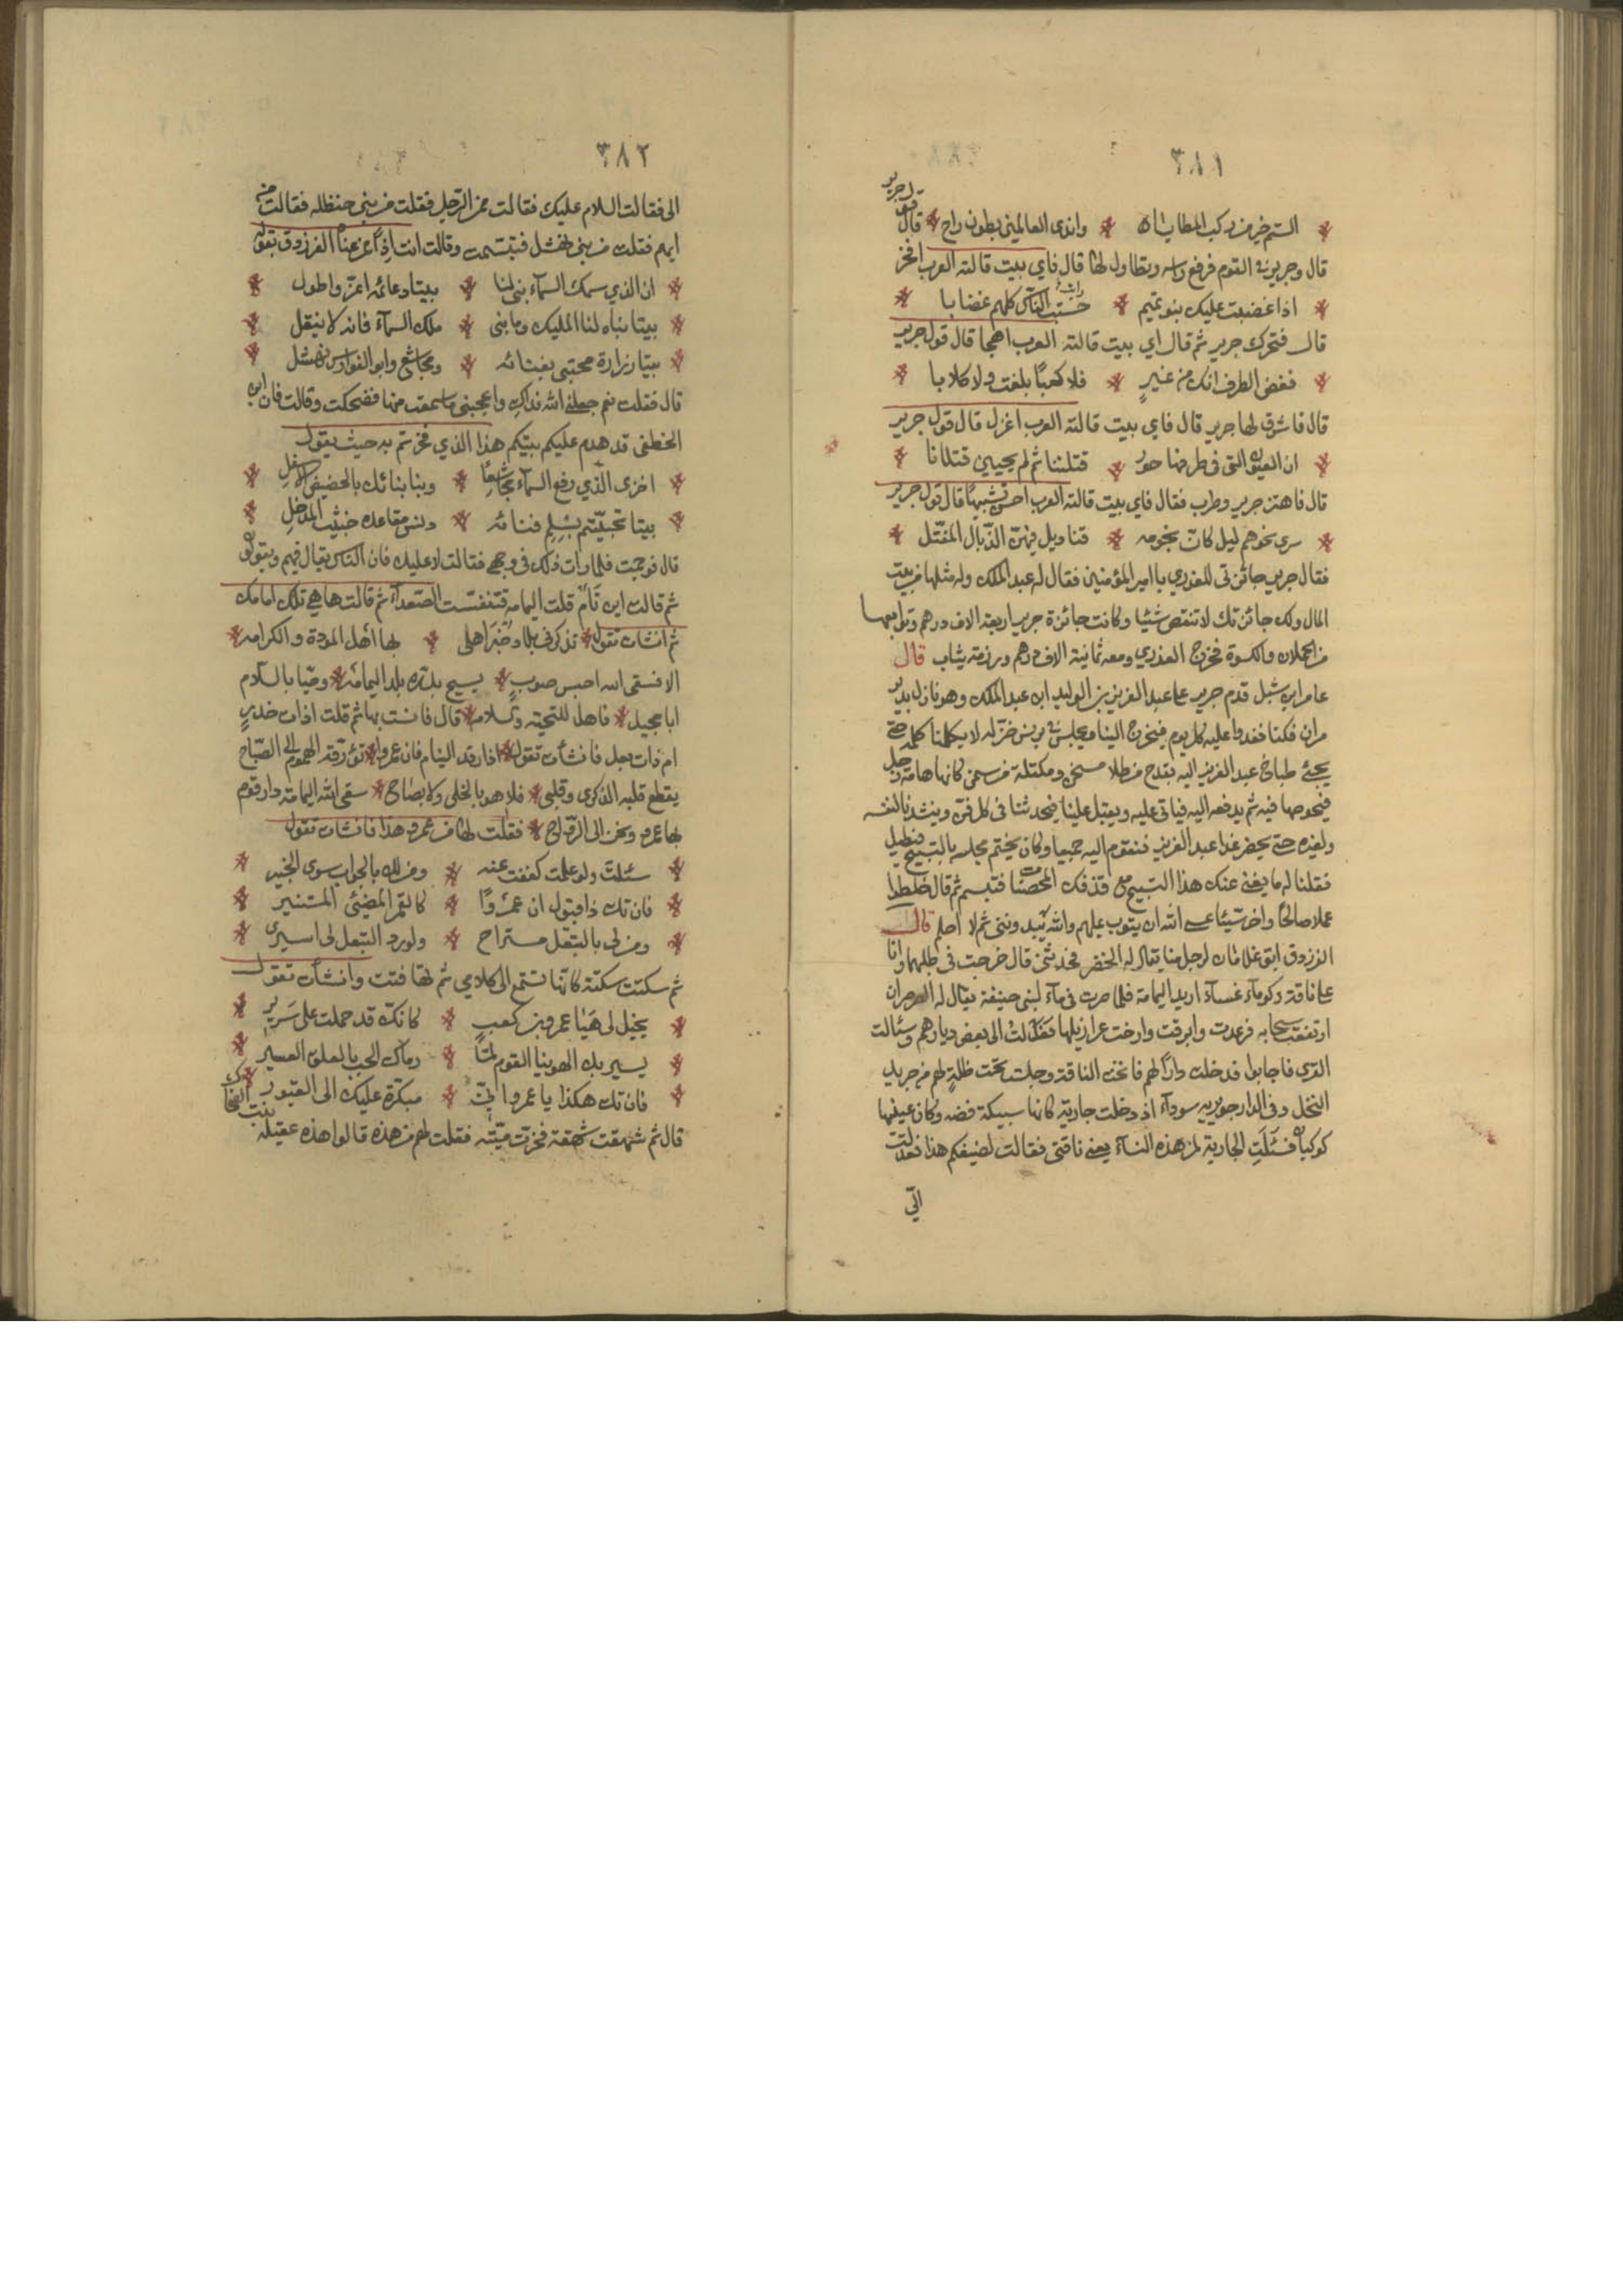 ٣٨١
الستم خير من ركب المطايا * واندى العالمين بطون راح * قال قول جرير
قال وجرير في القوم فرفع راسه وتطاول لها قال فاي بيت قالته العرب افخر
اذا غضبت عليك بنو تميم * حسبت الناس كلهم غضابا
قال فتحرك جرير ثم قال اي بيت قالته العرب اهجا قال قول جرير
فغض الطرف انك من نمير * فلا كعبًا بلغت ولا كلابا
قال فاشرق لها جرير قال فاي بيت قالته العرب اغزل قال قول جرير
ان العيون التى فى طرفها حور * قتلننا ثم لم يحيين قتلانا
قال فاهتز جرير وطرب فقال فاي بيت قالته العرب احسن تشبيهًا قال قول جرير
سرى نحوهم ليل كان نجومه * قناديل فيهن الذبال المفتل
فقال جرير جائزتى للعذري يا امير المؤمنين فقال له عبد الملك وله مثلها من بيت
المال ولك جائزتك لا تنقص شيئا وكانت جائزة جرير اربعة الاف درهم وتوابعها
من الحملان والكسوة فخرج العذري ومعه ثمانية الاف درهم ورزمة ثياب قال
عامر ابن شبل قدم جرير على عبد العزيز بن الوليد ابن عبد الملك وهو نازل بدير
مران فكنا نغدوا عليه كل يوم فيخرج الينا ويجلس في برنس خز له لا يكلمنا كلمة حتى
يجئ طباخ عبد العزيز اليه بقدح من طلا مسخن ومكتلة من سمن كانها هامة رجل
فيخوصها فيه ثم يدفعه اليه فياتى عليه ويقبل علينا فيحدثنا فى كل فن وينشدنا لنفسه
ولغيره حتى يحضر غدا عبد العزيز فنقوم اليه جميعا وكان يختم مجلسه بالتسبيح فيطيل
فقلنا له ما يغنى عنك هذا التسبيح مع قذفك المحصنات فتبسم ثم قال خلطوا
عملا صالحًا واخر سيئا عسى الله ان يتوب عليهم والله يبدوننى ثم لا احلم قال
الفرزدق ابق غلامان لرجل منا يقال له الخضر فحدثنى قال خرجت فى طلبهما وانا
على ناقة كوماء غسآء اريد اليمامة فلما صرت فى مآء لبنى حنيفة يقال له الصرصران
ارتفعت سحابه فرعدت وابرقت وارخت عزاليها فعدلت الى بعض ديارهم وسئالت
القرى فاجابوا فدخلت دارًا لهم فانخت الناقة وجلست تحت ظلة لهم من جريد
النخل وفى الدار جويرية سودآء اذ دخلت جارية كانها سبيكة فضه وكان عينيها
كوكبان فسئلت الجارية لمن هذه النسآء يعنى ناقتى فقالت لضيفكم هذا فعدلت
الىّ
٣٨٢
الى فقالت السلام عليك فقالت ممن الرجل فقلت من بنى حنظله فقالت من
ايهم فقلت من بنى نهشل فتبسمت وقالت انت اذًا ممن عناه الفرزدق بقوله
ان الذي سمك السمآء بنى لنا * بيتا دعائمه اعز واطول
بيتا بناه لنا المليك وما بنى * ملك السمآء فانه لا ينقل
بيتا زرارة محتبى بفنائه * ومجاشع وابو الفوارس نهشل
قال فقلت نعم جعلنى الله فداك واعجبنى ما سمعت منها فضحكت وقالت فان ابن
الخطفى قد هدم عليكم بيتكم هذا الذي فخرتم به حيث يقول
اخزى الذي رفع السمآء مجاشعًا * وبنا بنائك بالحضيض الاسفل
بيتا تحممتم بسلم فنائه * دنس مقاعده خبيث المدخل
قال فوجمت فلما رات ذلك فى وجهى فقالت لا عليك فان الناس يقال فيهم ويقولون
ثم قالت اين تام قلت اليمامه فتنفست الصعدآء ثم قالت ها هى تلك امامك
ثم انشات تقول * تذكرنى بلاد خير اهلى * بها اهل المودة والكرامه *
الا فسقى الله احبس صوب * يسيح بدره بلد اليمامه * وحيا بالسلام
ابا مجيد * فاهل للتحية والسلامه * قال فانست بها ثم قلت اذات خدرٍ
ام ذات بعل فانشأت تقول * اذا رقد النيام فان عمروا * تؤرقه الهموم الى الصباح
يقطع قلبه الذكرى وقلبى * فلا هو بالخلى ولا بصاح * سقى الله اليمامة دار قوم
بها عمرو ونحن الى الرواح * فقلت لها من عمرو هذا فانشات تقول
سئلت ولو علمت كففت عنه * ومن لك بالجواب سوى الخبير
فان تك ذا قبول ان عمروًا * كالقمر المضيئ المستنير
ومن لى بالتبعل مستراح * ولو رد التبعل لى اسيرى
ثم سكتت سكتة كانها تستمع الى كلامى ثم تهافتت وانشأت تقول
يخيل لى هيا عمرو بن كعب * كانك قد حملت على سرير
يسير بك الهوينا القوم لما * رماك الحب بالعلق العسير
فان تك هكذا يا عمرو انى * مبكرة عليك الى القبور
قال ثم شهقت شهقة فخرت ميته فقلت لهم من هذه قالوا هذه عقيله بنت الضحاك